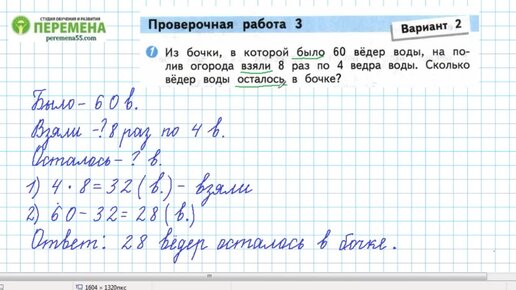 СТУДИЯ ОБУЧЕНИЯ И РАЗВИТИЯ
ПЕРЕМЕНА
peremena55.com
Проверочная работа 3
Вариант 2
1 Из бочки, в которой было 60 вёдер воды, на по-
лив огорода взяли 8 раз по 4 ведра воды. Сколько
вёдер воды осталось в бочке?
Было - 60 в.
Взяли -? 8 раз по 4 в.
Осталось - ? в.
1) 4 · 8 = 32 (в.) - взяли
2) 60 - 32 = 28 (в.)
Ответ: 28 вёдер осталось в бочке.
1604 × 1320пкс